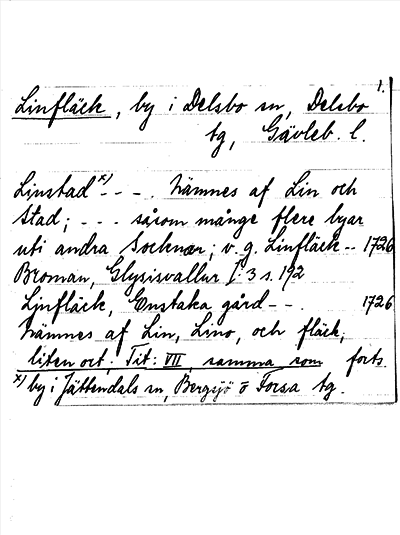 1.
Linfläck, by i Delsbo sn, Delsbo
tg, Gävleb. l.
Linstad x) - - - . Nämnes af Lin och
Stad; - - - såsom många flere byar
uti andra Socknar; v. g. Linfläck - - 1726
Broman, Glysisvallur I: 3 s. 192
Linfläck, Enstaka gård - - . 1726
Nämnes af Lin, Lino, och fläck,
liten ort; Tit: VII, samma som forts.
x) by i Jättendals sn, Bergsjö o Forsa tg.